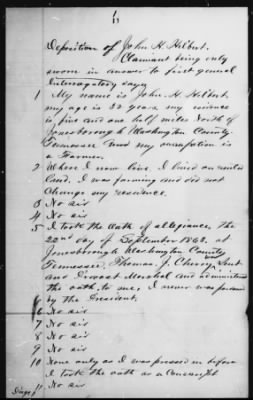 1
Deposition of John H. Hilbert.
Claimant being duly
sworn in answer to first general
Interrogatory says
1 My name is John. H. Hilbert.
my age is 32 years, my residence
is five and one half miles North of
Jonesborough Washington County
Tennessee and my occupation is
a Farmer.
2 Where I now live. I lived on rented
land. I was farming and did not
change my residence.
3 No sir
4 No sir
5 I took the oath of allegiance, the
22nd day of September 1863. at
Jonesborough Washington County
Tennessee. Thomas. J. Cherry was Lieut
and Provost Marshal and administered
the oath to me; I never was pardoned
by the President.
6 No sir
7 No sir
8 No sir
9 No sir
10 None only as I was pressed in before
I took the oath as a Conscript
11 No sir